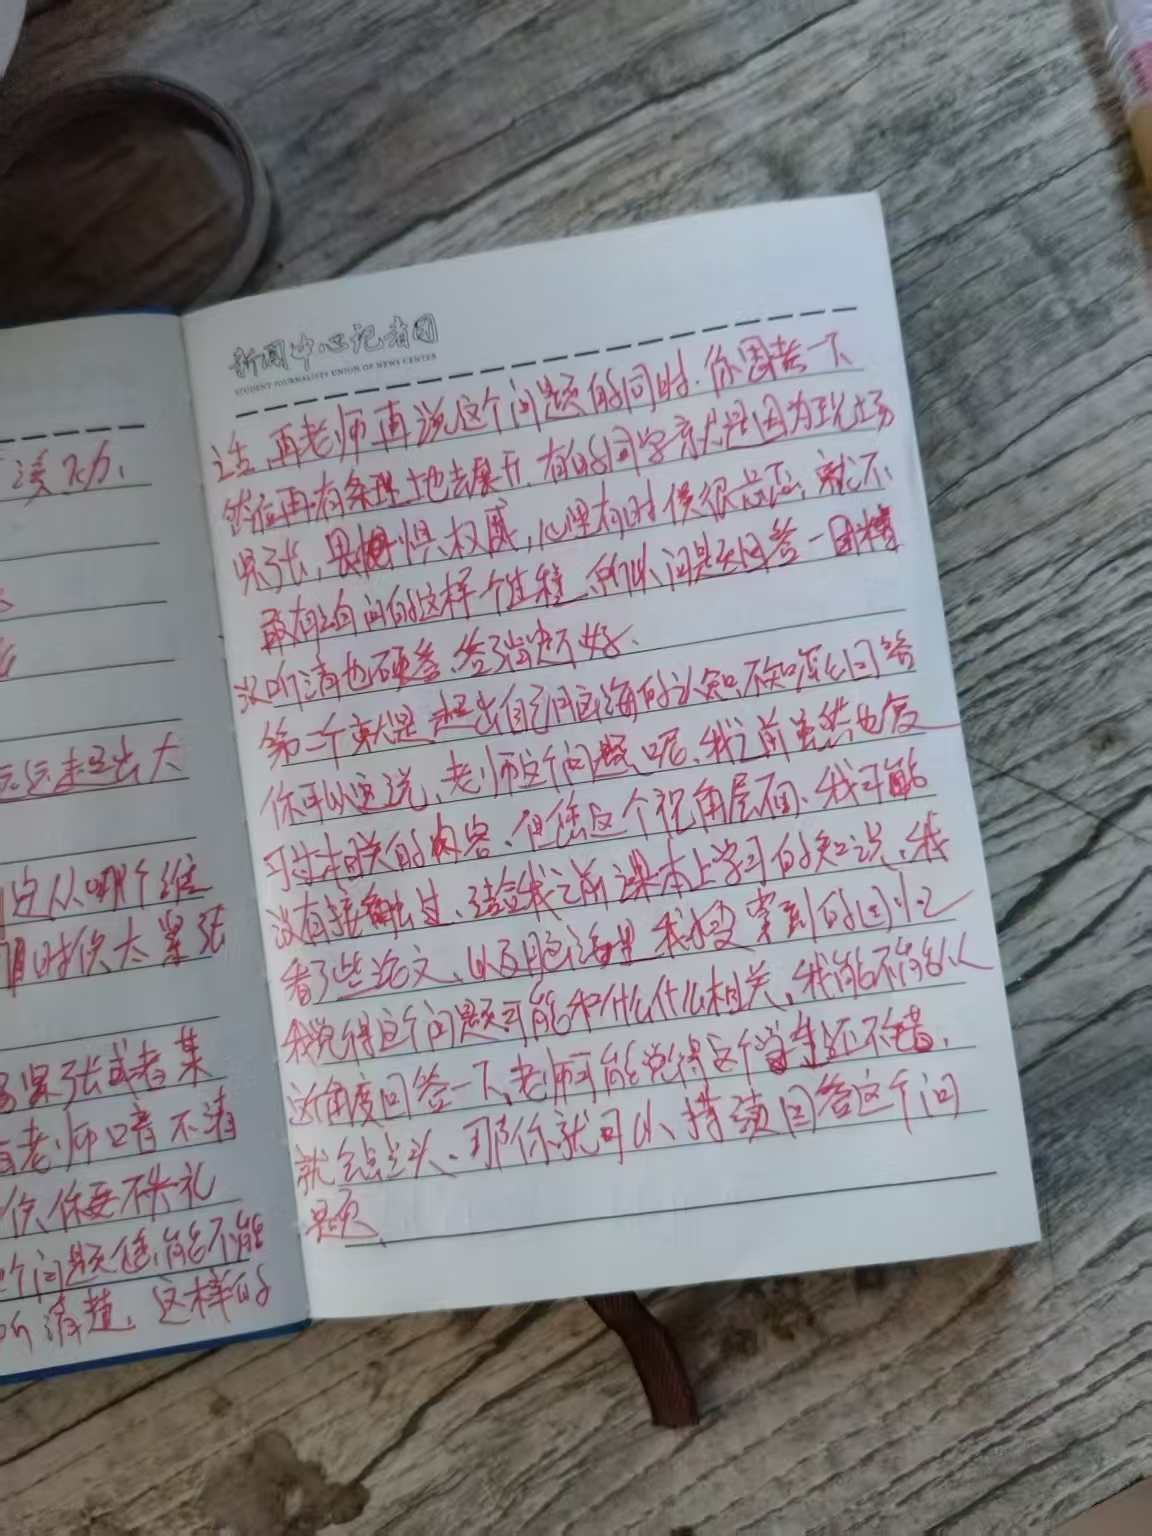 凌乱、
云云超出大
定从哪个维
时候太紧张
紧张或者某
老师口音不清
你要不失礼
个问题能不能
听清楚，这样的
新闻中心记者团
STUDENT JOURNALISTS UNION OF NEWS CENTER
话，再老师再说这个问题的同时，你思考一下
然后再有条理地去展开，有的同学就是因为现场
紧张，畏惧权威，心里有时候很忐忑，就不
敢有追问的这样个过程，所以问题回答一团糟
没听清也硬答，答了当然不好、
第二个就是超出自己脑海的认知，不知怎么回答
你可以这说，老师这个问题呢，我之前虽然也复
习过相关的内容，但您这个视角层面，我可能
没有接触过，结合我之前课本上学习的知识，我
看了些论文，以及脑海里我搜索到的回忆
我觉得这个问题可能和什么什么相关，我能不能从
这角度回答一下，老师可能觉得这个学生还不错，
就会点点头、那你就可以持续回答这个问
题